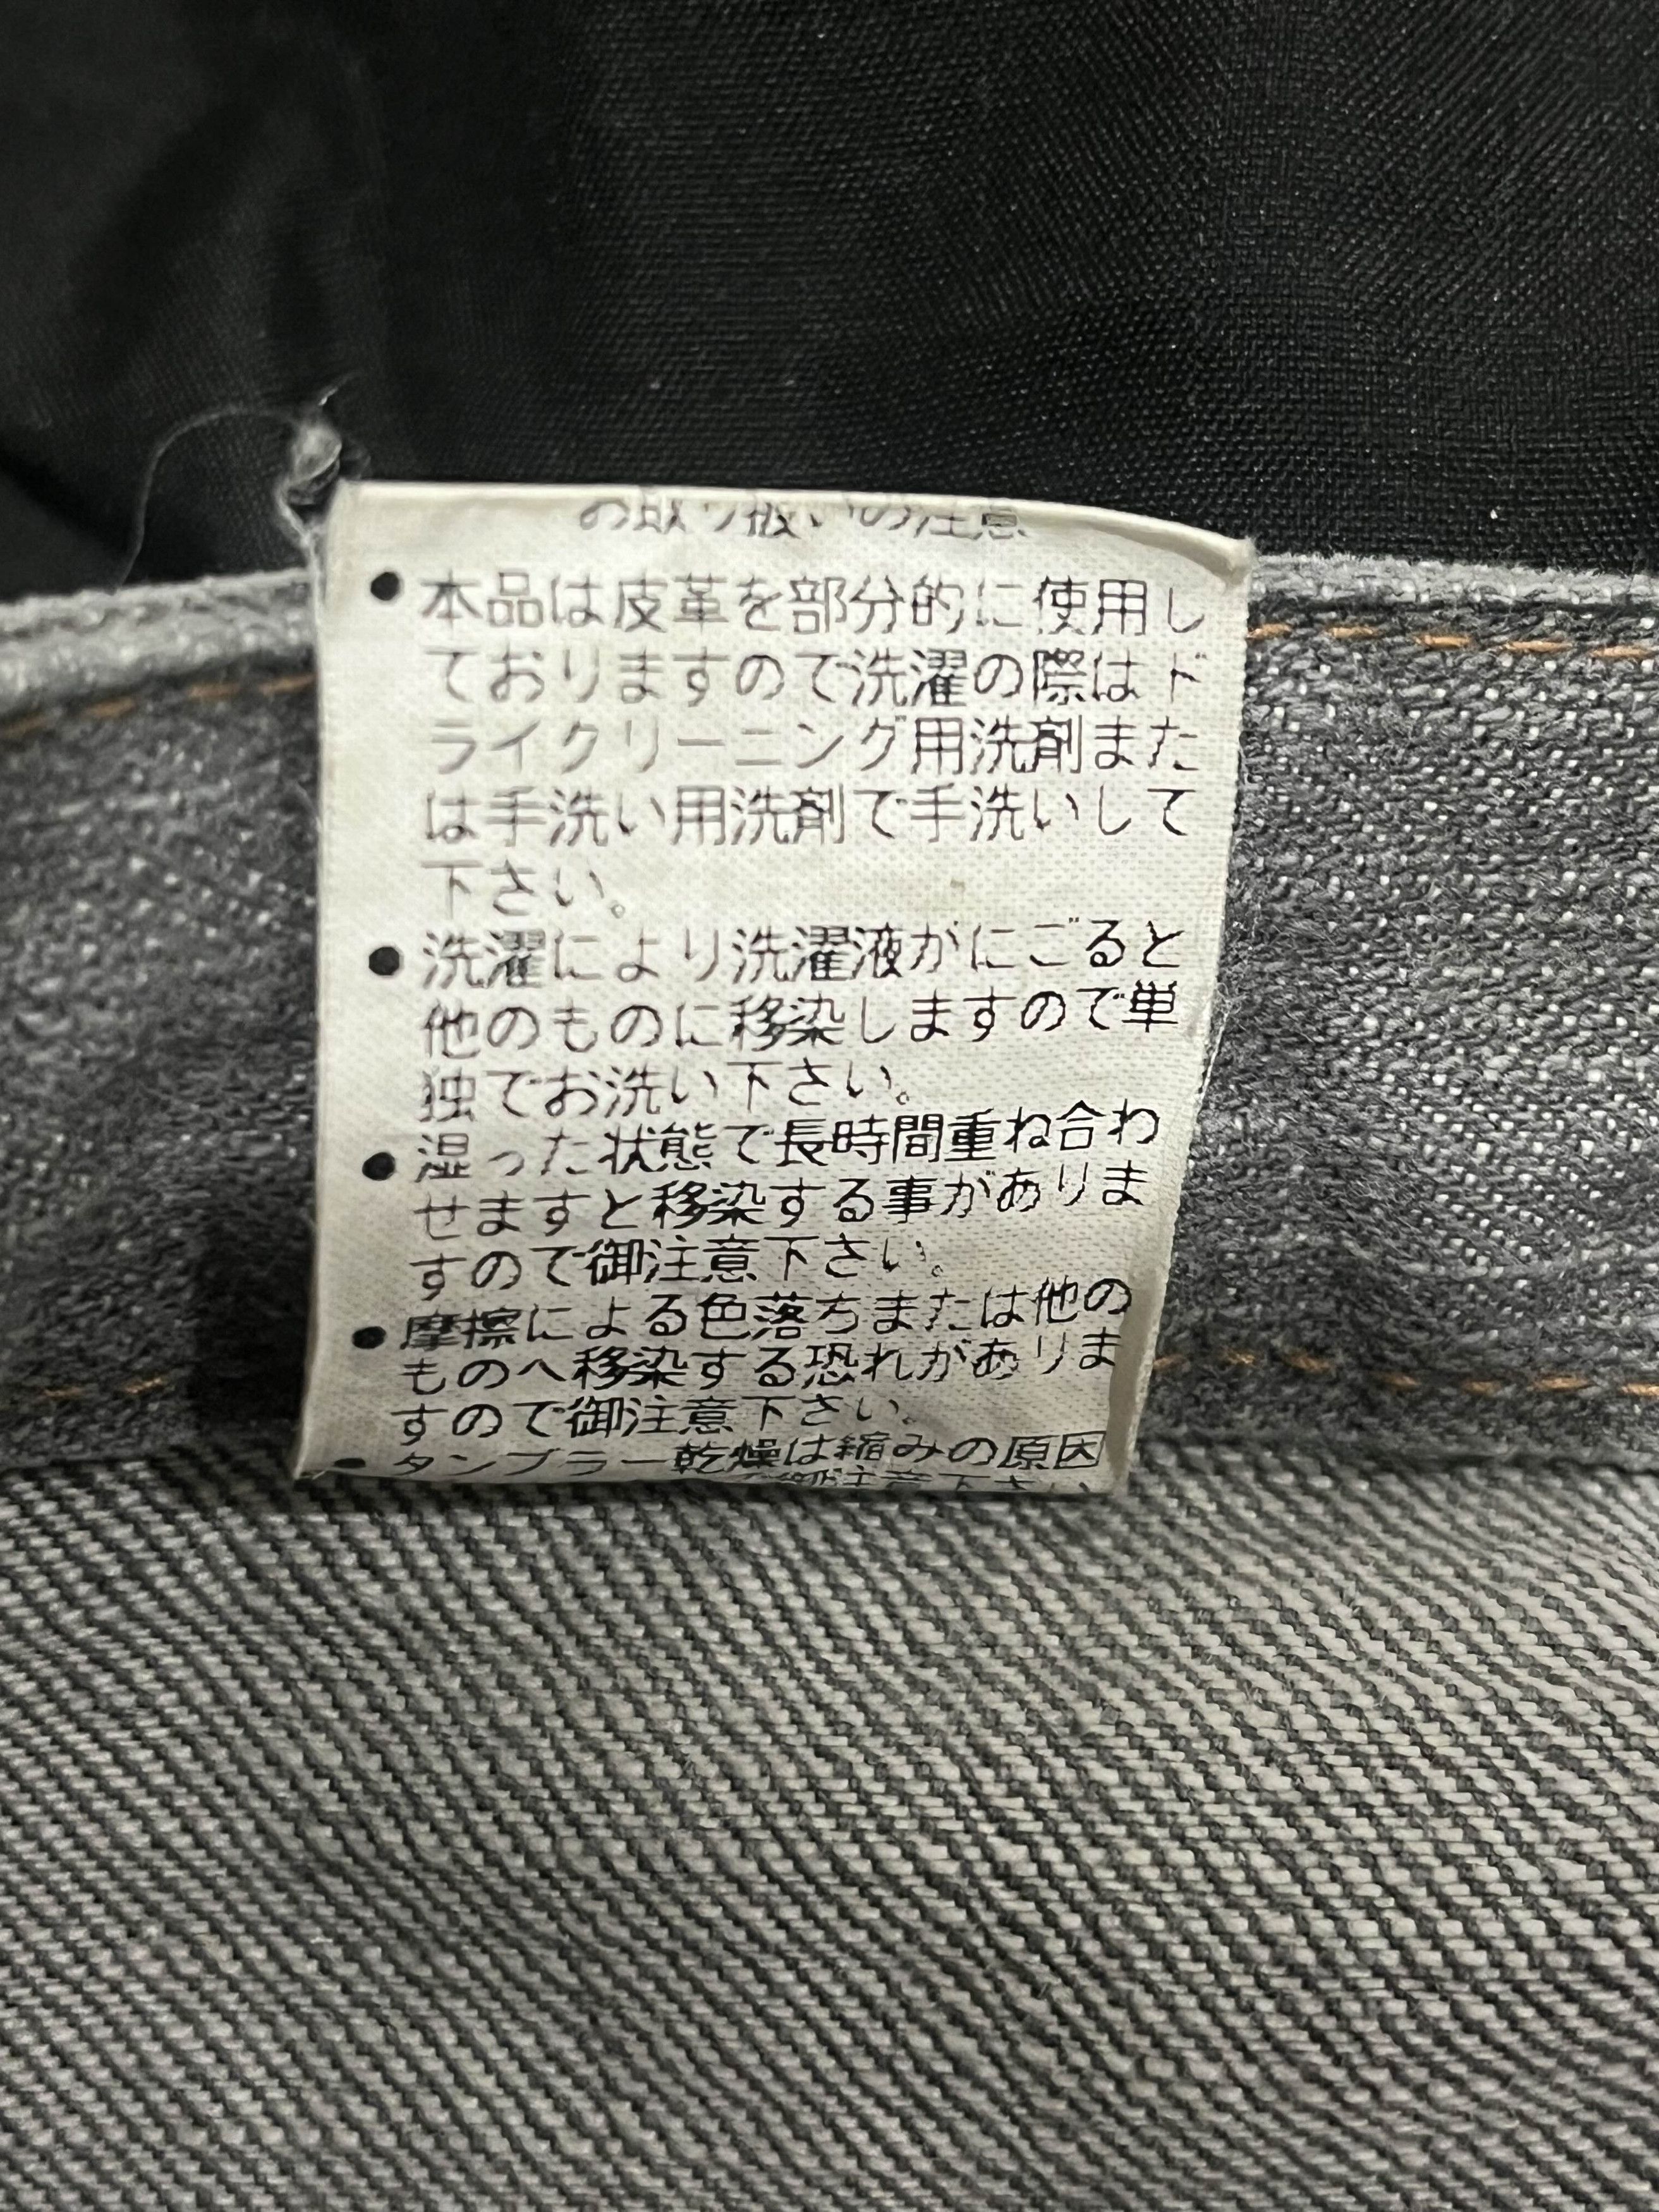 お取り扱いの注意
●本品は皮革を部分的に使用し
ておりますので洗濯の際はド
ライクリーニング用洗剤また
は手洗い用洗剤で手洗いして
下さい。
●洗濯により洗濯液がにごると
他のものに移染しますので単
独でお洗い下さい。
●湿った状態で長時間重ね合わ
せますと移染する事がありま
すので御注意下さい。
●摩擦による色落ちまたは他の
ものへ移染する恐れがありま
すので御注意下さい。
●タンブラー乾燥は縮みの原因
御注意下さい